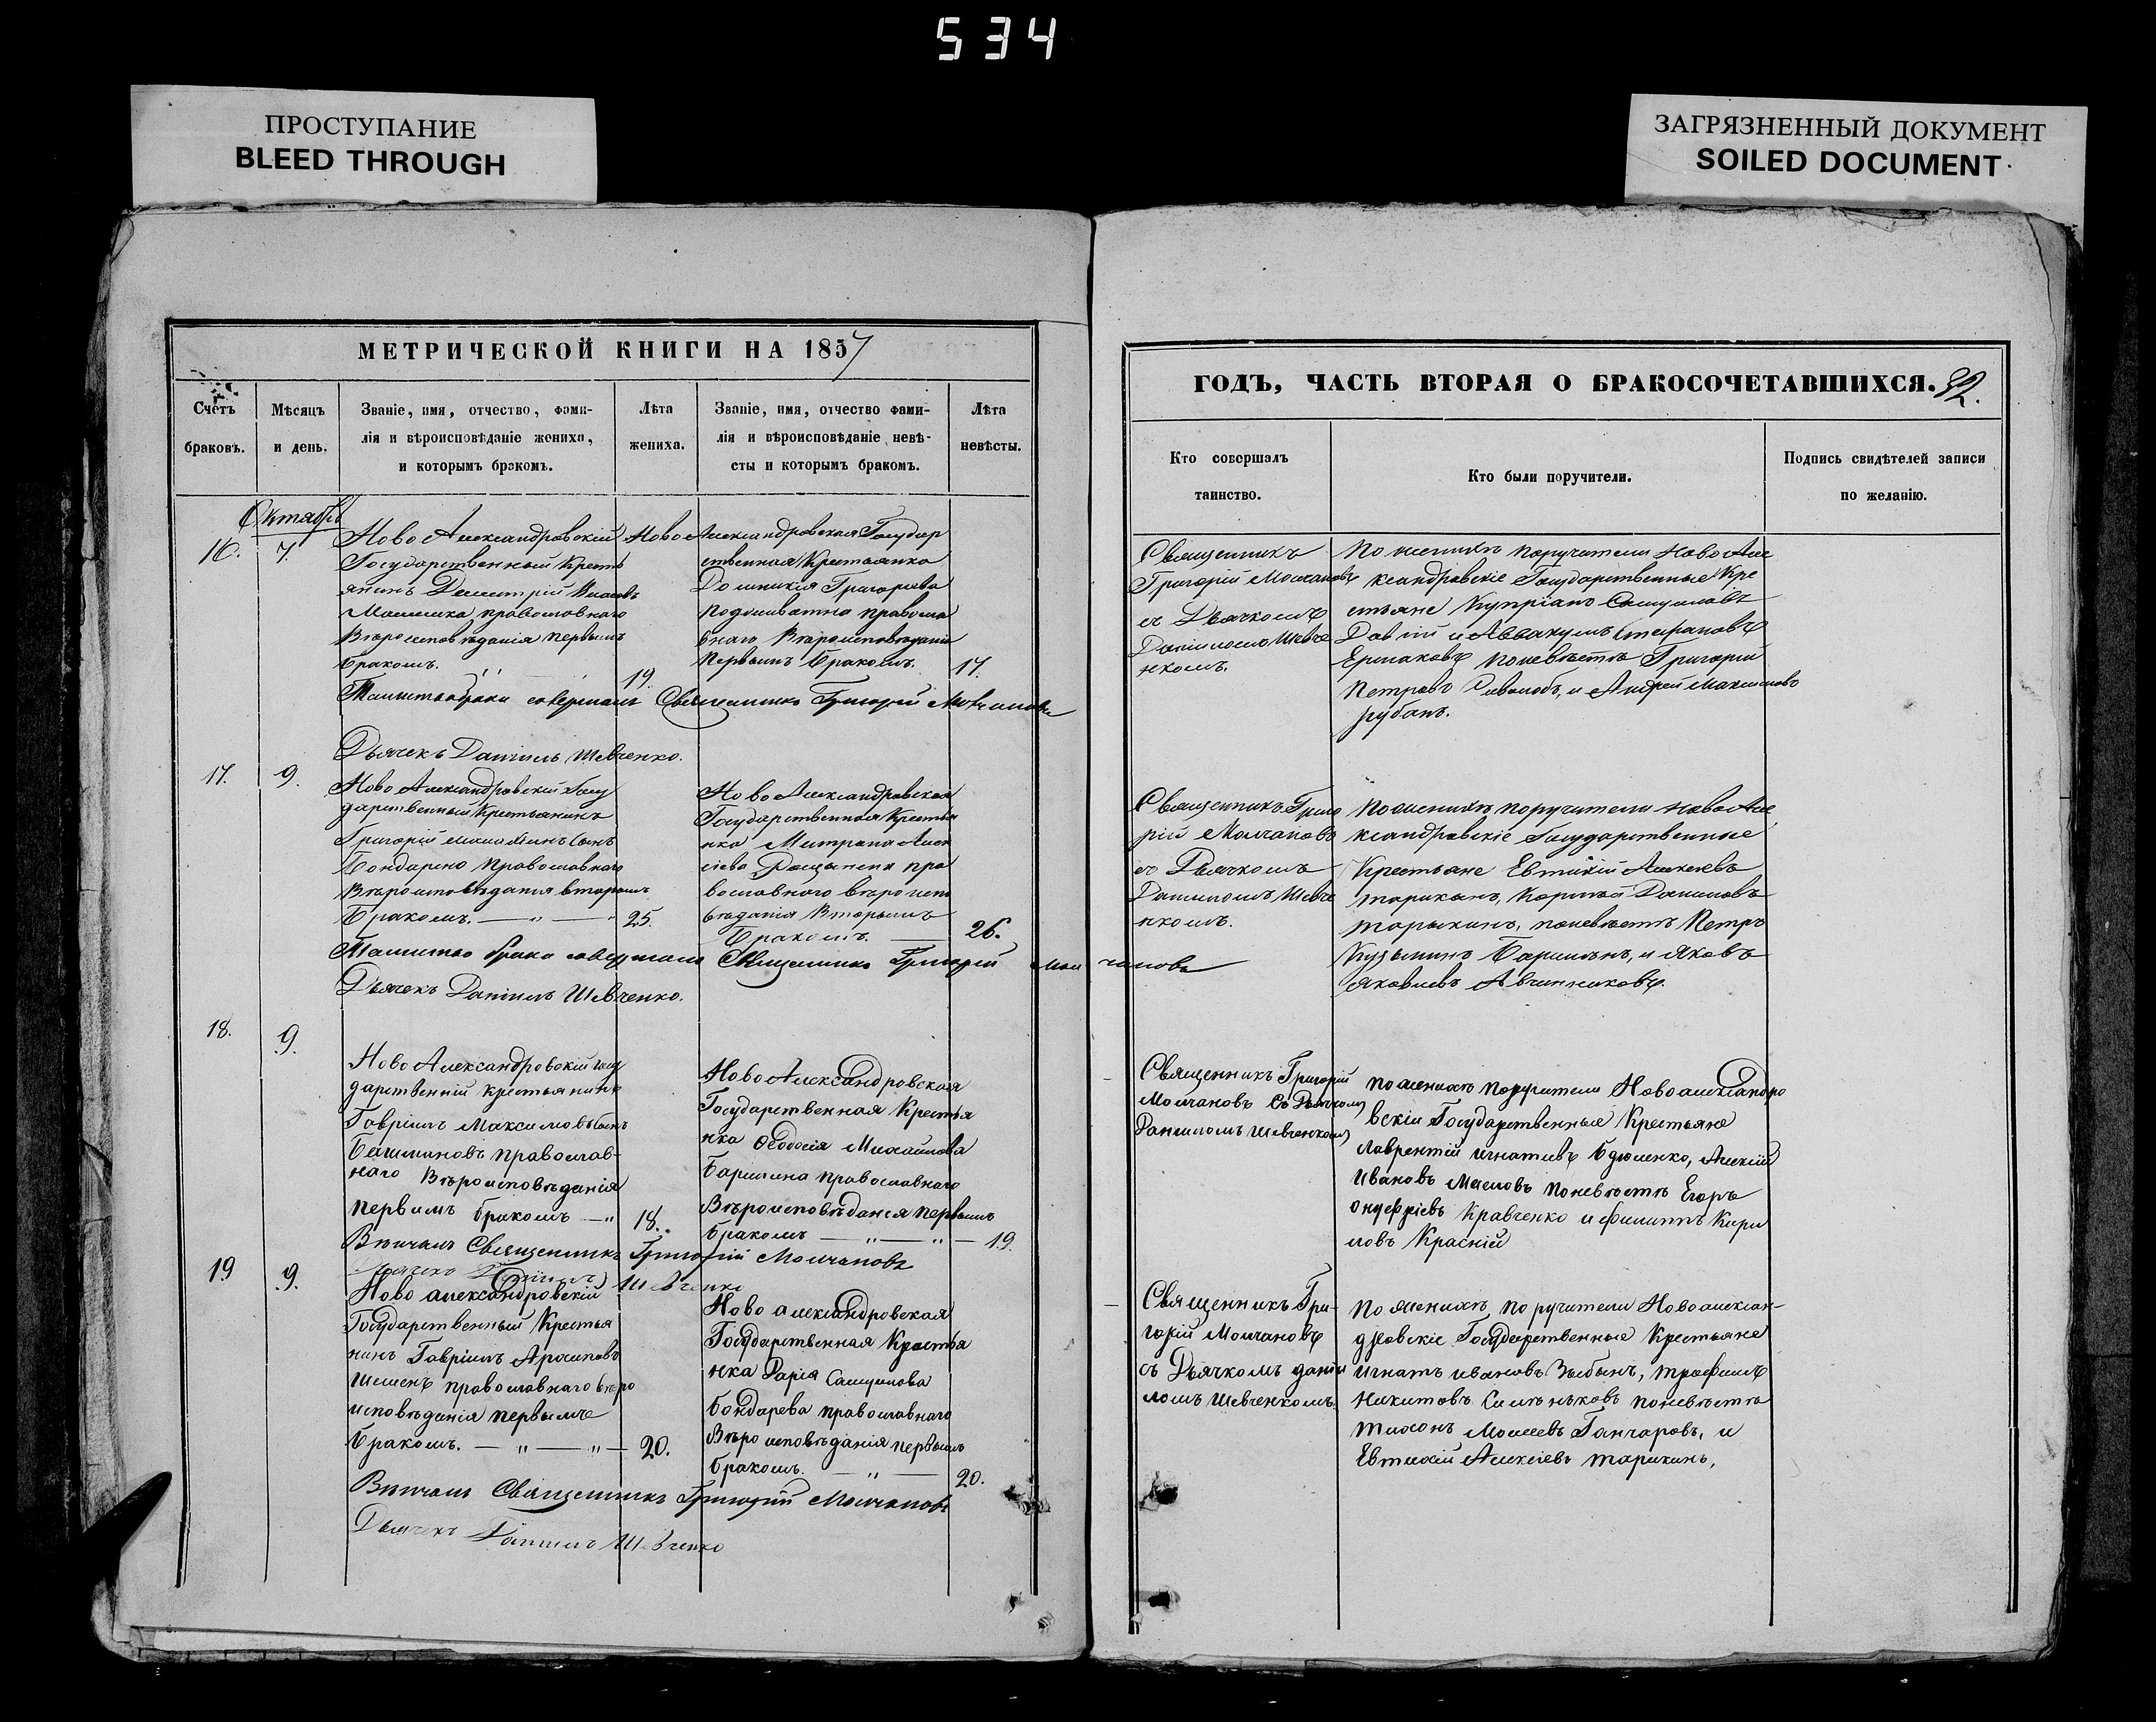 534
ПРОСТУПАНИЕ
BLEED THROUGH
ЗАГРЯЗНЕННЫЙ ДОКУМЕНТ
SOILED DOCUMENT
МЕТРИЧЕСКОЙ КНИГИ НА 1857
Счетъ браковъ.
Мѣсяцъ и день.
Званіе, имя, отчество, фами-
лія и вѣроисповѣданіе жениха,
и которымъ бракомъ.
Лѣта жениха.
Званіе, имя, отчество фами-
лія и вѣроисповѣданіе невѣ-
сты и которымъ бракомъ.
Лѣта невѣсты.
Октябрь
16.
7.
Ново Александровскій
Государственный Кресть
янинъ Димитрій
православнаго
Вѣроисповѣданія первымъ
бракомъ.
19.
Ново Александровская Государ
ственная Крестьянка
Григорьева
правосла
внаго Вѣроисповѣданія
первымъ бракомъ.
17.
Таинство брака совершалъ Священникъ Григорій Молчановъ
Дьячекъ Даніилъ Шевченко.
17.
9.
Ново Александровскій Госу
дарственный Крестьянинъ
Григорій сынъ
Бондарено Православнаго
Вѣроисповѣданія вторымъ
Бракомъ. — " — " 25.
Ново Александровская
Государственная Крестья
нка Митрана Алек
сіева пра
вославнаго вѣроиспо
вѣданія Вторымъ
Бракомъ. — 26.
Таинство брака совершалъ Священникъ Григорій Молчановъ
Дьячекъ Даніилъ Шевченко.
18.
9.
Ново Александровскій Госу
дарственній крестьянинъ
Гавріилъ Максимовъ сынъ
Башмановъ православ-
наго Вѣроисповѣданія
первымъ бракомъ — " 18.
Ново Александровская
Государственная Крестья
нка Ѳеодосія Михайлова
Барішина православнаго
Вѣроисповѣданія первымъ
бракомъ — " — " — 19.
Вѣнчалъ Священникъ Григорій Молчановъ
Дьячекъ Даніилъ Шевченко
19
9.
Ново александровскій
Государственный Крестья
нинъ Гавріилъ
православнаго вѣро
исповѣданія первымъ
бракомъ. — " — " — 20.
Ново александровская
Государственная Крестья
нка Дарія Самуилова
Бондарева православнаго
Вѣроисповѣданія первымъ
бракомъ. — " — 20.
Вѣнчалъ Священникъ Григорій Молчановъ
Дьячекъ Даніилъ Шевченко
ГОДЪ, ЧАСТЬ ВТОРАЯ О БРАКОСОЧЕТАВШИХСЯ.
Кто совершалъ таинство.
Кто были поручители.
Подпись свидѣтелей записи по желанію.
Священникъ
Григорій Молчановъ
съ Дьячкомъ
Даніиломъ Шевче
нкомъ.
По женихѣ поручители Ново Але
ксандровскіе Государственные Кре
стьяне Купріанъ Самуиловъ
и Аввакумъ Стефановъ
Ермаковъ по невѣстѣ Григорій
Петровъ и Андрей Максимовъ
рубанъ.
Священникъ Григо
рій Молчановъ
съ Дьячкомъ
Даніиломъ Шевче
нкомъ.
По женихѣ поручители Ново Але
ксандровскіе Государственные
Крестьяне Евтихій Алексѣевъ
тарикинъ, Корнѣй Даниловъ
тарыкинъ, по невѣстѣ Петръ
Кузьминъ и Яковъ
Яковлевъ Авчинниковъ.
Священникъ Григорій
Молчановъ съ Дьячкомъ
Даніиломъ Шевченкомъ
по женихѣ поручители Новоалександро
вскіи Государственные Крестьяне
Лаврентій Игнатіевъ Бдюленко, Алексій
Ивановъ Масловъ по невѣстѣ Егоръ
Онуфріевъ Кравченко и филиппъ Кири
ловъ Красній
Священникъ Гри-
горій Молчановъ
съ Дьячкомъ Даніи
ломъ Шевченкомъ.
по женихѣ поручители Новоалексан-
дровскіе Государственные Крестьяне
Игнатъ Ивановъ Трофимъ
Никитовъ по невѣстѣ
Тихонъ Гончаровъ, и
Евтихій Алексіевъ тарикинъ,